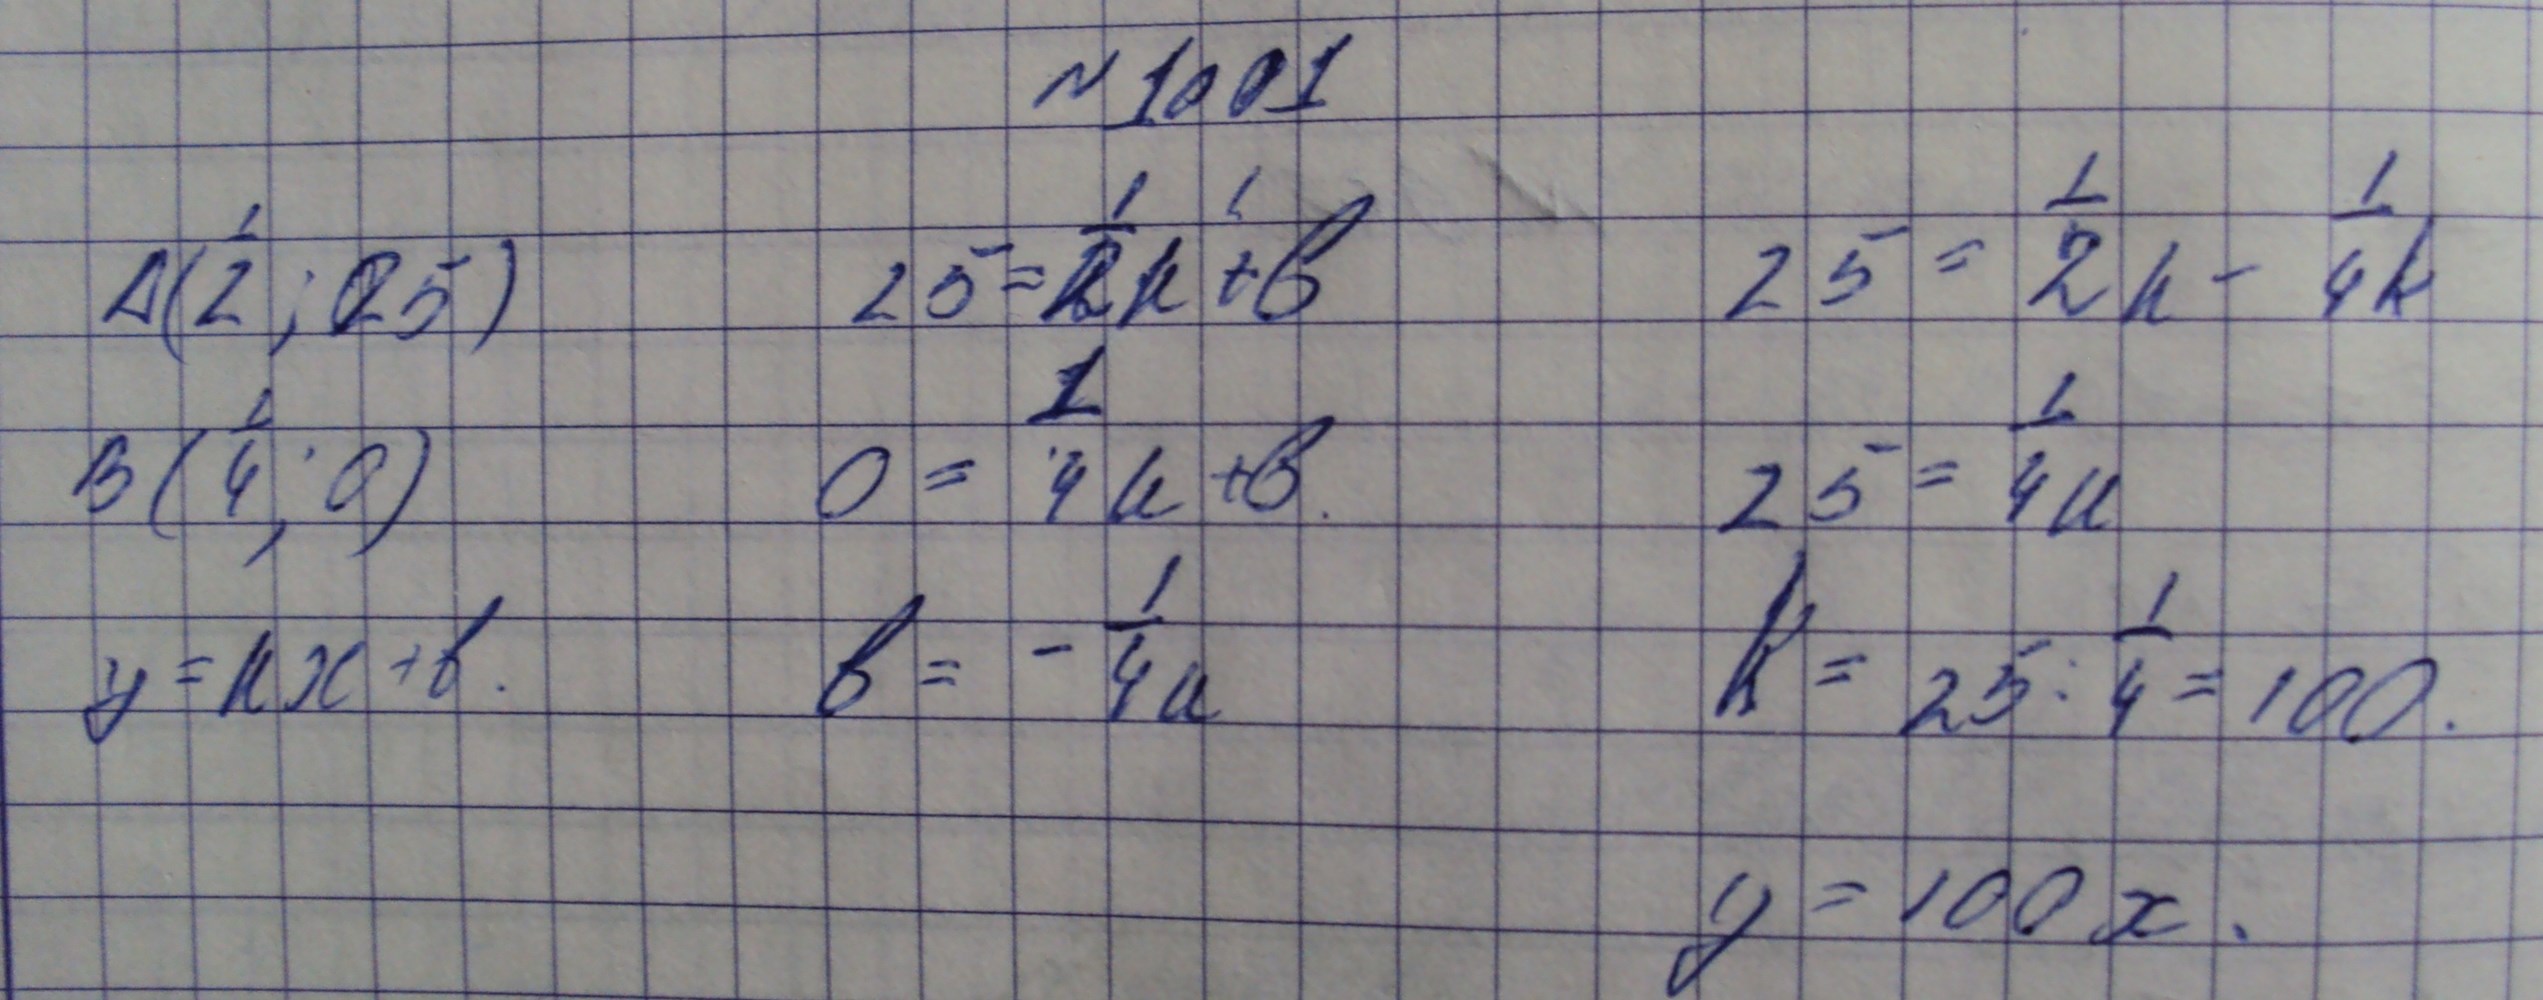 №1001
A(1/2; 25)
25 = 1/2k + b
25 = 1/2k - 1/4k
B(1/4; 0)
0 = 1/4k + b.
25 = 1/4k
y = kx + b.
b = - 1/4k
k = 25 : 1/4 = 100.
y = 100x.